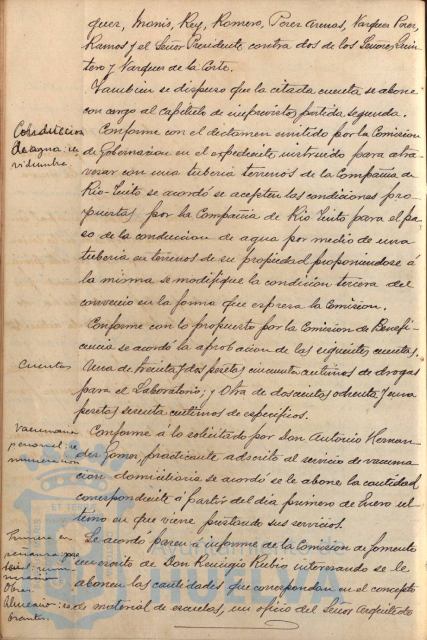 quer, Monis, Rey, Romero, Perez Arenas, Vazquez Perez,
Ramos y el Señor Presidente, contra dos de los Señores Quin-
tero y Vazquez de la Corte.
Tambien se dispuso que la citada cuenta se abone
con cargo al capítulo de imprevistos, partida segunda.
Conduccion
de agua: ser
vidumbre.
Conforme con el dictamen emitido por la Comision
de Gobernacion en el expediente instruido para atra-
vesar con una tuberia terrenos de la Compañia de
Rio-Tinto se acordó se acepten las condiciones pro-
puestas por la Compañia de Rio Tinto para el pa-
so de la conduccion de agua por medio de una
tuberia en terrenos de su propiedad proponiendose á
la misma se modifique la condicion tercera del
convenio en la forma que espresa la Comision.
Conforme con lo propuesto por la Comision de Benefi-
cencia se acordó la aprobacion de las siguientes cuentas.
Cuentas
Una de treinta y dos pesetas cincuenta centimos de drogas
para el Laboratorio; y Otra de doscientas ochenta y una
pesetas sesenta centimos de especificos.
Vacunacion
personal: re
muneracion
Conforme á lo solicitado por Don Antonio Hernan
dez Gomez, practicante adscrito al servicio de vacuna
cion domiciliaria se acordó se le abone la cantidad
correspondiente á partir del dia primero de Enero ul-
timo en que viene prestando sus servicios.
Primera en
señanza:
Obras
Se acordó pasen á informe de la Comision de Fomento
un escrito de Don Remigio Rubio interesando se le
abonen las cantidades que correspondan en el concepto
de material de escuelas, un oficio del Señor Arquitecto
HUELVA